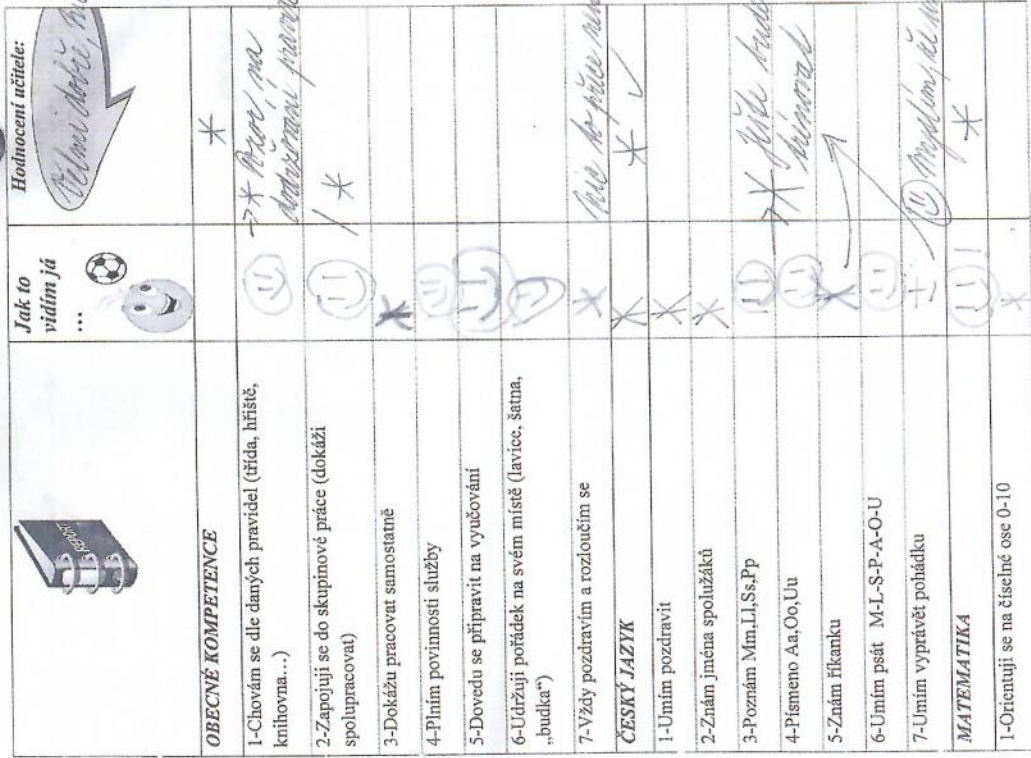 Jak to
vidím já
...
Hodnocení učitele:
Velmi dobře,
OBECNÉ KOMPETENCE
1-Chovám se dle daných pravidel (třída, hřiště,
knihovna...)
Pozor na
dodržování
2-Zapojuji se do skupinové práce (dokáži
spolupracovat)
3-Dokážu pracovat samostatně
4-Plním povinnosti služby
5-Dovedu se připravit na vyučování
6-Udržuji pořádek na svém místě (lavice, šatna,
„budka“)
7-Vždy pozdravím a rozloučím se
ČESKÝ JAZYK
1-Umím pozdravit
2-Znám jména spolužáků
3-Poznám Mm,Ll,Ss,Pp
4-Písmeno Aa,Oo,Uu
Ještě bude
trénovat
5-Znám říkanku
6-Umím psát M-L-S-P-A-O-U
7-Umím vyprávět pohádku
myslím, že
MATEMATIKA
1-Orientuji se na číselné ose 0-10